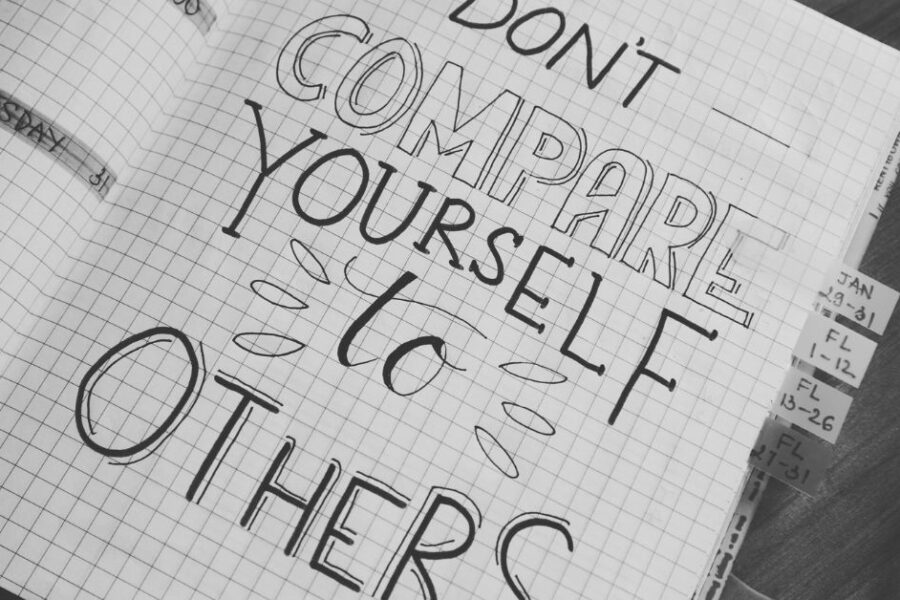 DON'T
COMPARE
YOURSELF
to
OTHERS
31
JAN
29-31
FL
1-12
FL
13-26
FL
27-31